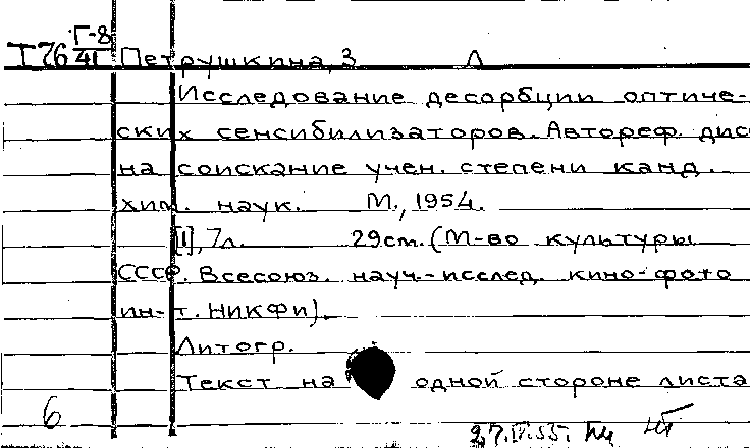 Т76 Г-8/41 Петрушкина, З Л
Исследование десорбции оптиче-
ских сенсибилизаторов. Автореф. дисс
на соискание учен. степени канд.
хим. наук. М., 1954.
[1], 7л. 29см. (М-во культуры
СССР. Всесоюз. науч.-исслед. кино-фото
ин-т. НИКФИ).
Литогр.
Текст на одной стороне листа
6
27.IV.55.